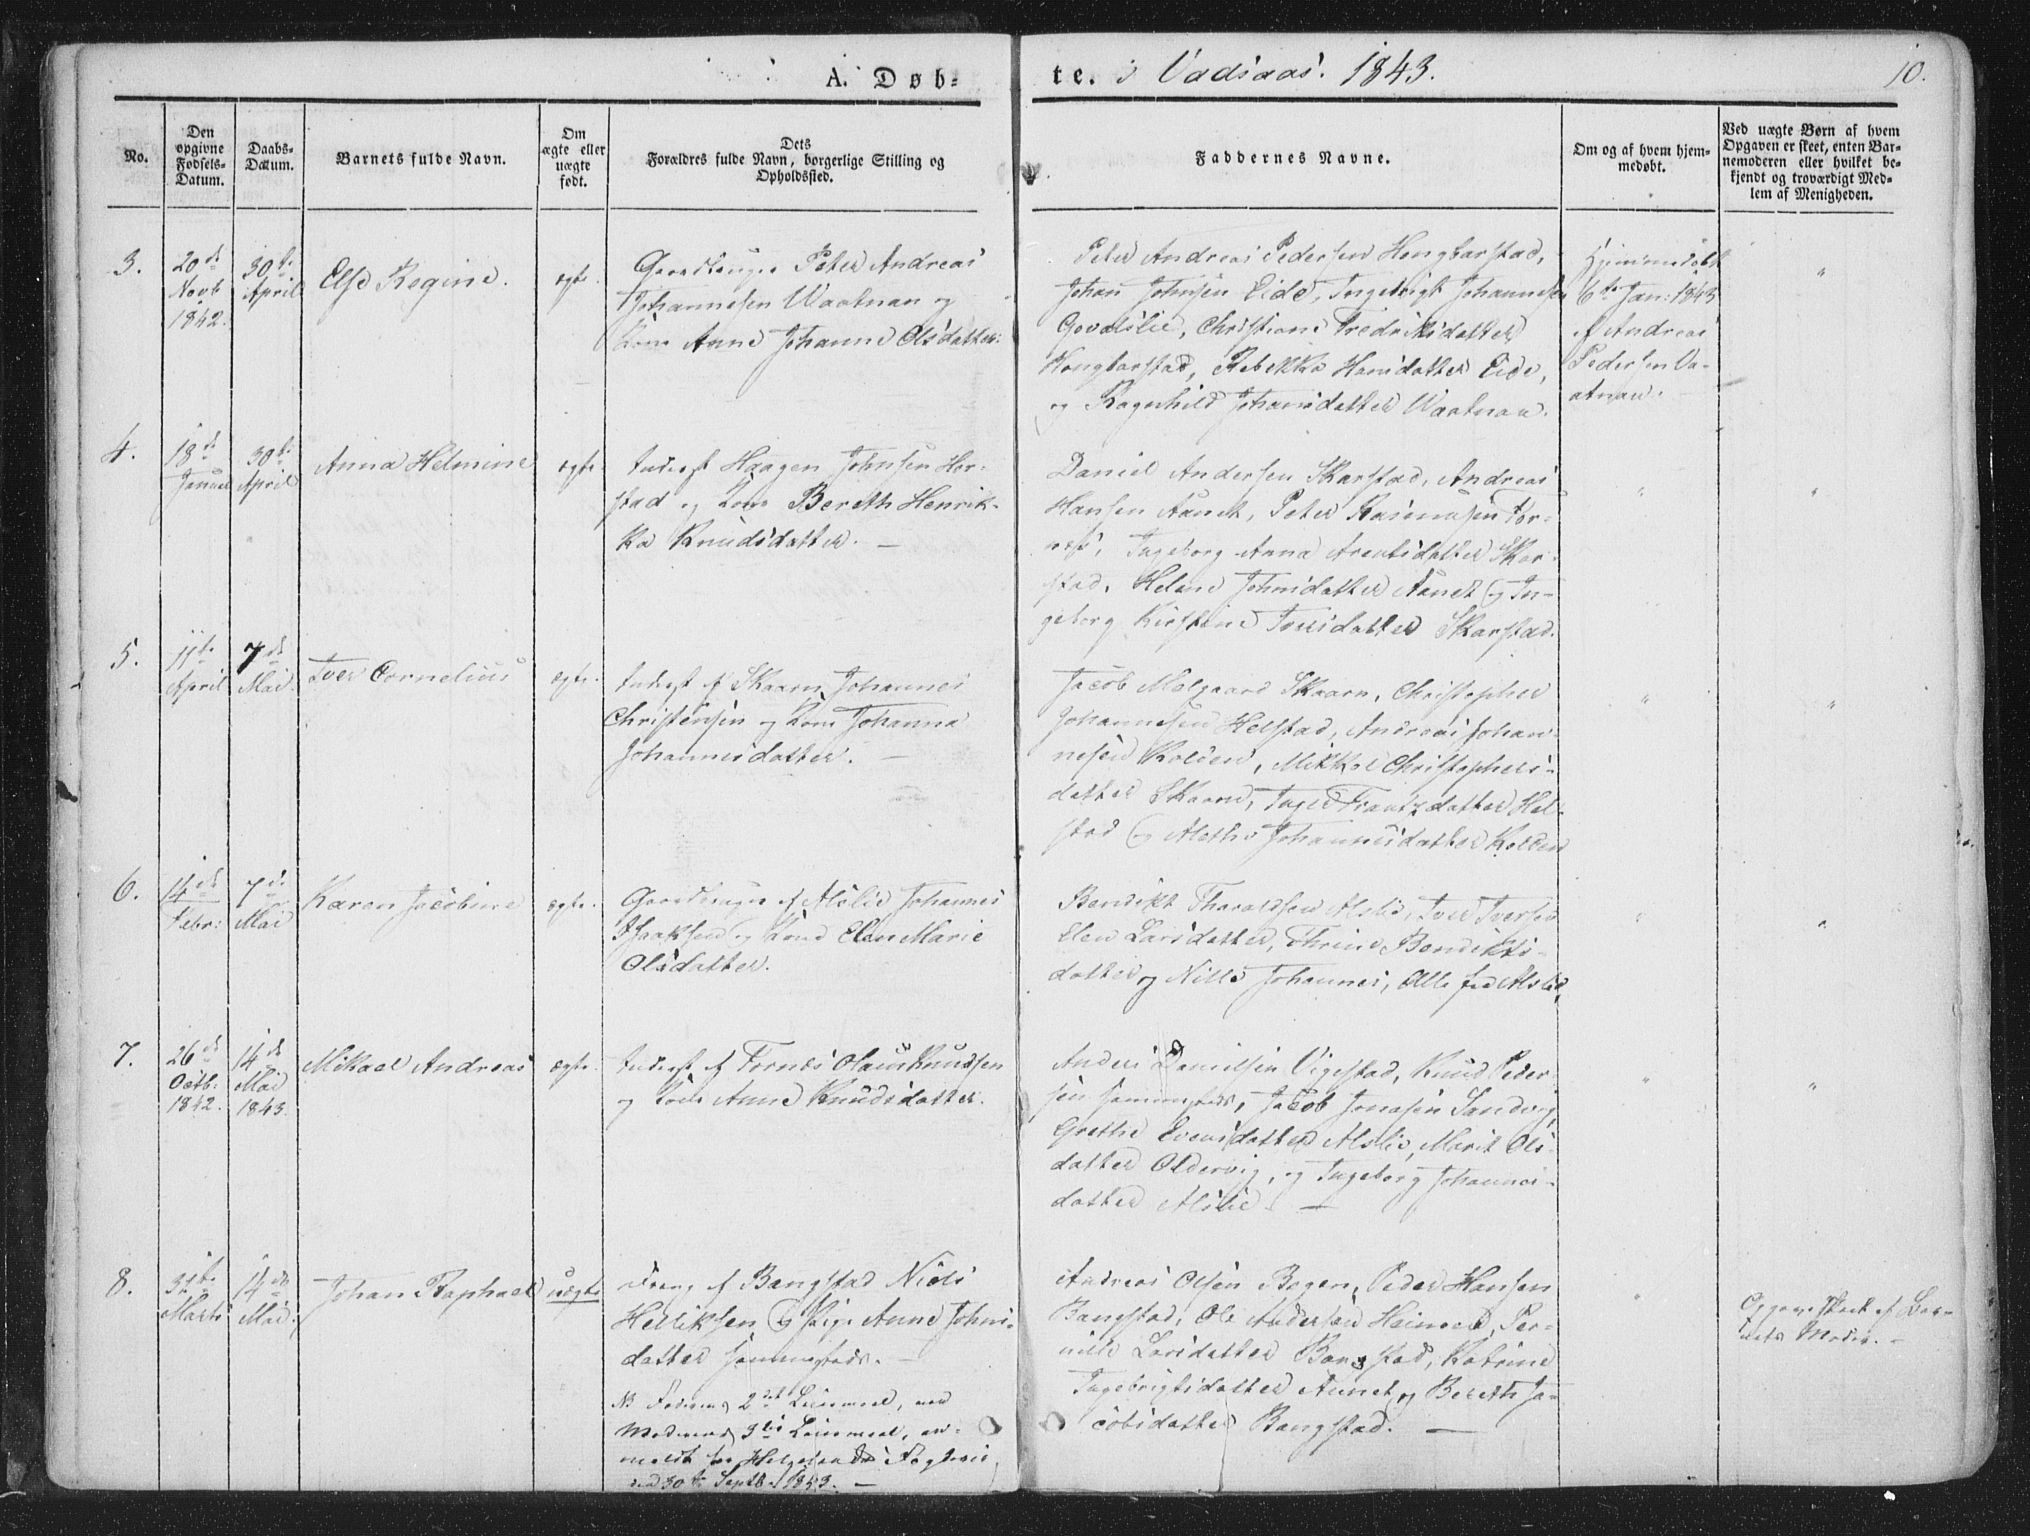 A. Døb-
te. i Vadsaas. 1843.
10.
No.
Den opgivne Fødsels-Datum.
Daabs-Datum.
Barnets fulde Navn.
Om ægte eller uægte født.
Dets
Forældres fulde Navn, borgerlige Stilling og
Opholdssted.
Faddernes Navne.
Om og af hvem hjem-
medøbt.
Ved uægte Børn af hvem
Opgaven er skeet, enten Bar-
nemoderen eller hvilket be-
kjendt og troværdigt Med-
lem af Menigheden.
3.
20de
Novb
1842.
30te
April
Else Regine.
ægte.
Gaardbruger Peter Andreas
Johannesen Waatnan og
Kone Anne Johanna Olsdatter.
Peter Andreas Pedersen
Johan Johnsen Eide, Ingebrigt Johannesen
Christiane Fredriksdatter
Rebekka Hansdatter Eide,
og Ragnhild Johansdatter Waatnan.
Hjemmedøbt
6te Jan: 1843
af Andreas
Pedersen Va-
atnan.
"
4.
18de
Januar
30te
April
Anna Helmine
ægte.
Inderst Haagen Johnsen Hor-
stad og Kone Bereth Henrik-
ka Knudsdatter. —
Daniel Andersen Skarstad, Andreas
Hansen Aunet, Peter Rasmusen For-
nes, Ingeborg Anna Arentsdatter Skar-
stad, Helene Johnsdatter Aunet og In-
geborg Kirstine Iversdatter Skarstad.
"
"
5.
11te
April
7de
Mai.
Iver Cornelius
ægte.
Inderst af Skaarn Johannes
Christensen og Kone Johanna
Johannesdatter. —
Jacob Melgaard Skaarn, Christopher
Johannesen Helstad, Andreas Johan-
nesen Kolden, Mikkal Christophers-
datter Skaarn, Inger Frantzdatter Hel-
stad og Alethe Johannesdatter Kolden
"
"
6.
14de
Febr:
7de
Mai
Karen Jacobine
ægte.
Gaardbruger af Alslie Johannes
Isaaksen og Kone Elen Marie
Olsdatter.
Bendikt Tharaldsen Alslie, Iver Iversen
Elen Larsdatter, Thrine Bendikts-
datter og Nille Johannes, Alle fra Alslie,
"
"
7.
26de
Octb:
1842.
14de
Mai
1843.
Mikael Andreas
ægte.
Inderst af Fornes Olaus Knudsen
og Kone Anne Knudsdatter.
Anders Danielsen Vigestad, Knud Peder-
sen sammesteds, Jacob Jonasen Sandvig,
Grethe Evensdatter Alslie, Marit Ols-
datter Oldervig, og Ingeborg Johannes-
datter Alslie. —
"
"
8.
31te
Marts
14de
Mai.
Johan Raphael
uægte
Dreng af Bangstad Niels
Henriksen og Pige Anne Johns-
datter sammesteds. —
NB Faderens 2det Leiermaal, og
Moderens 3die Leiermaal, an-
meldt for Fogderie
ved 30te Septbr 1843. —
Andreas Olsen Bogen, Peder Hansen
Bangstad, Ole Andersen Heimoen, Per-
nille Larsdatter Bangstad, Katrine
Ingebrigtsdatter Aunet og Bereth Ja-
cobsdatter Bangstad. —
"
Opgave skeet af Bar-
nets Moder. —